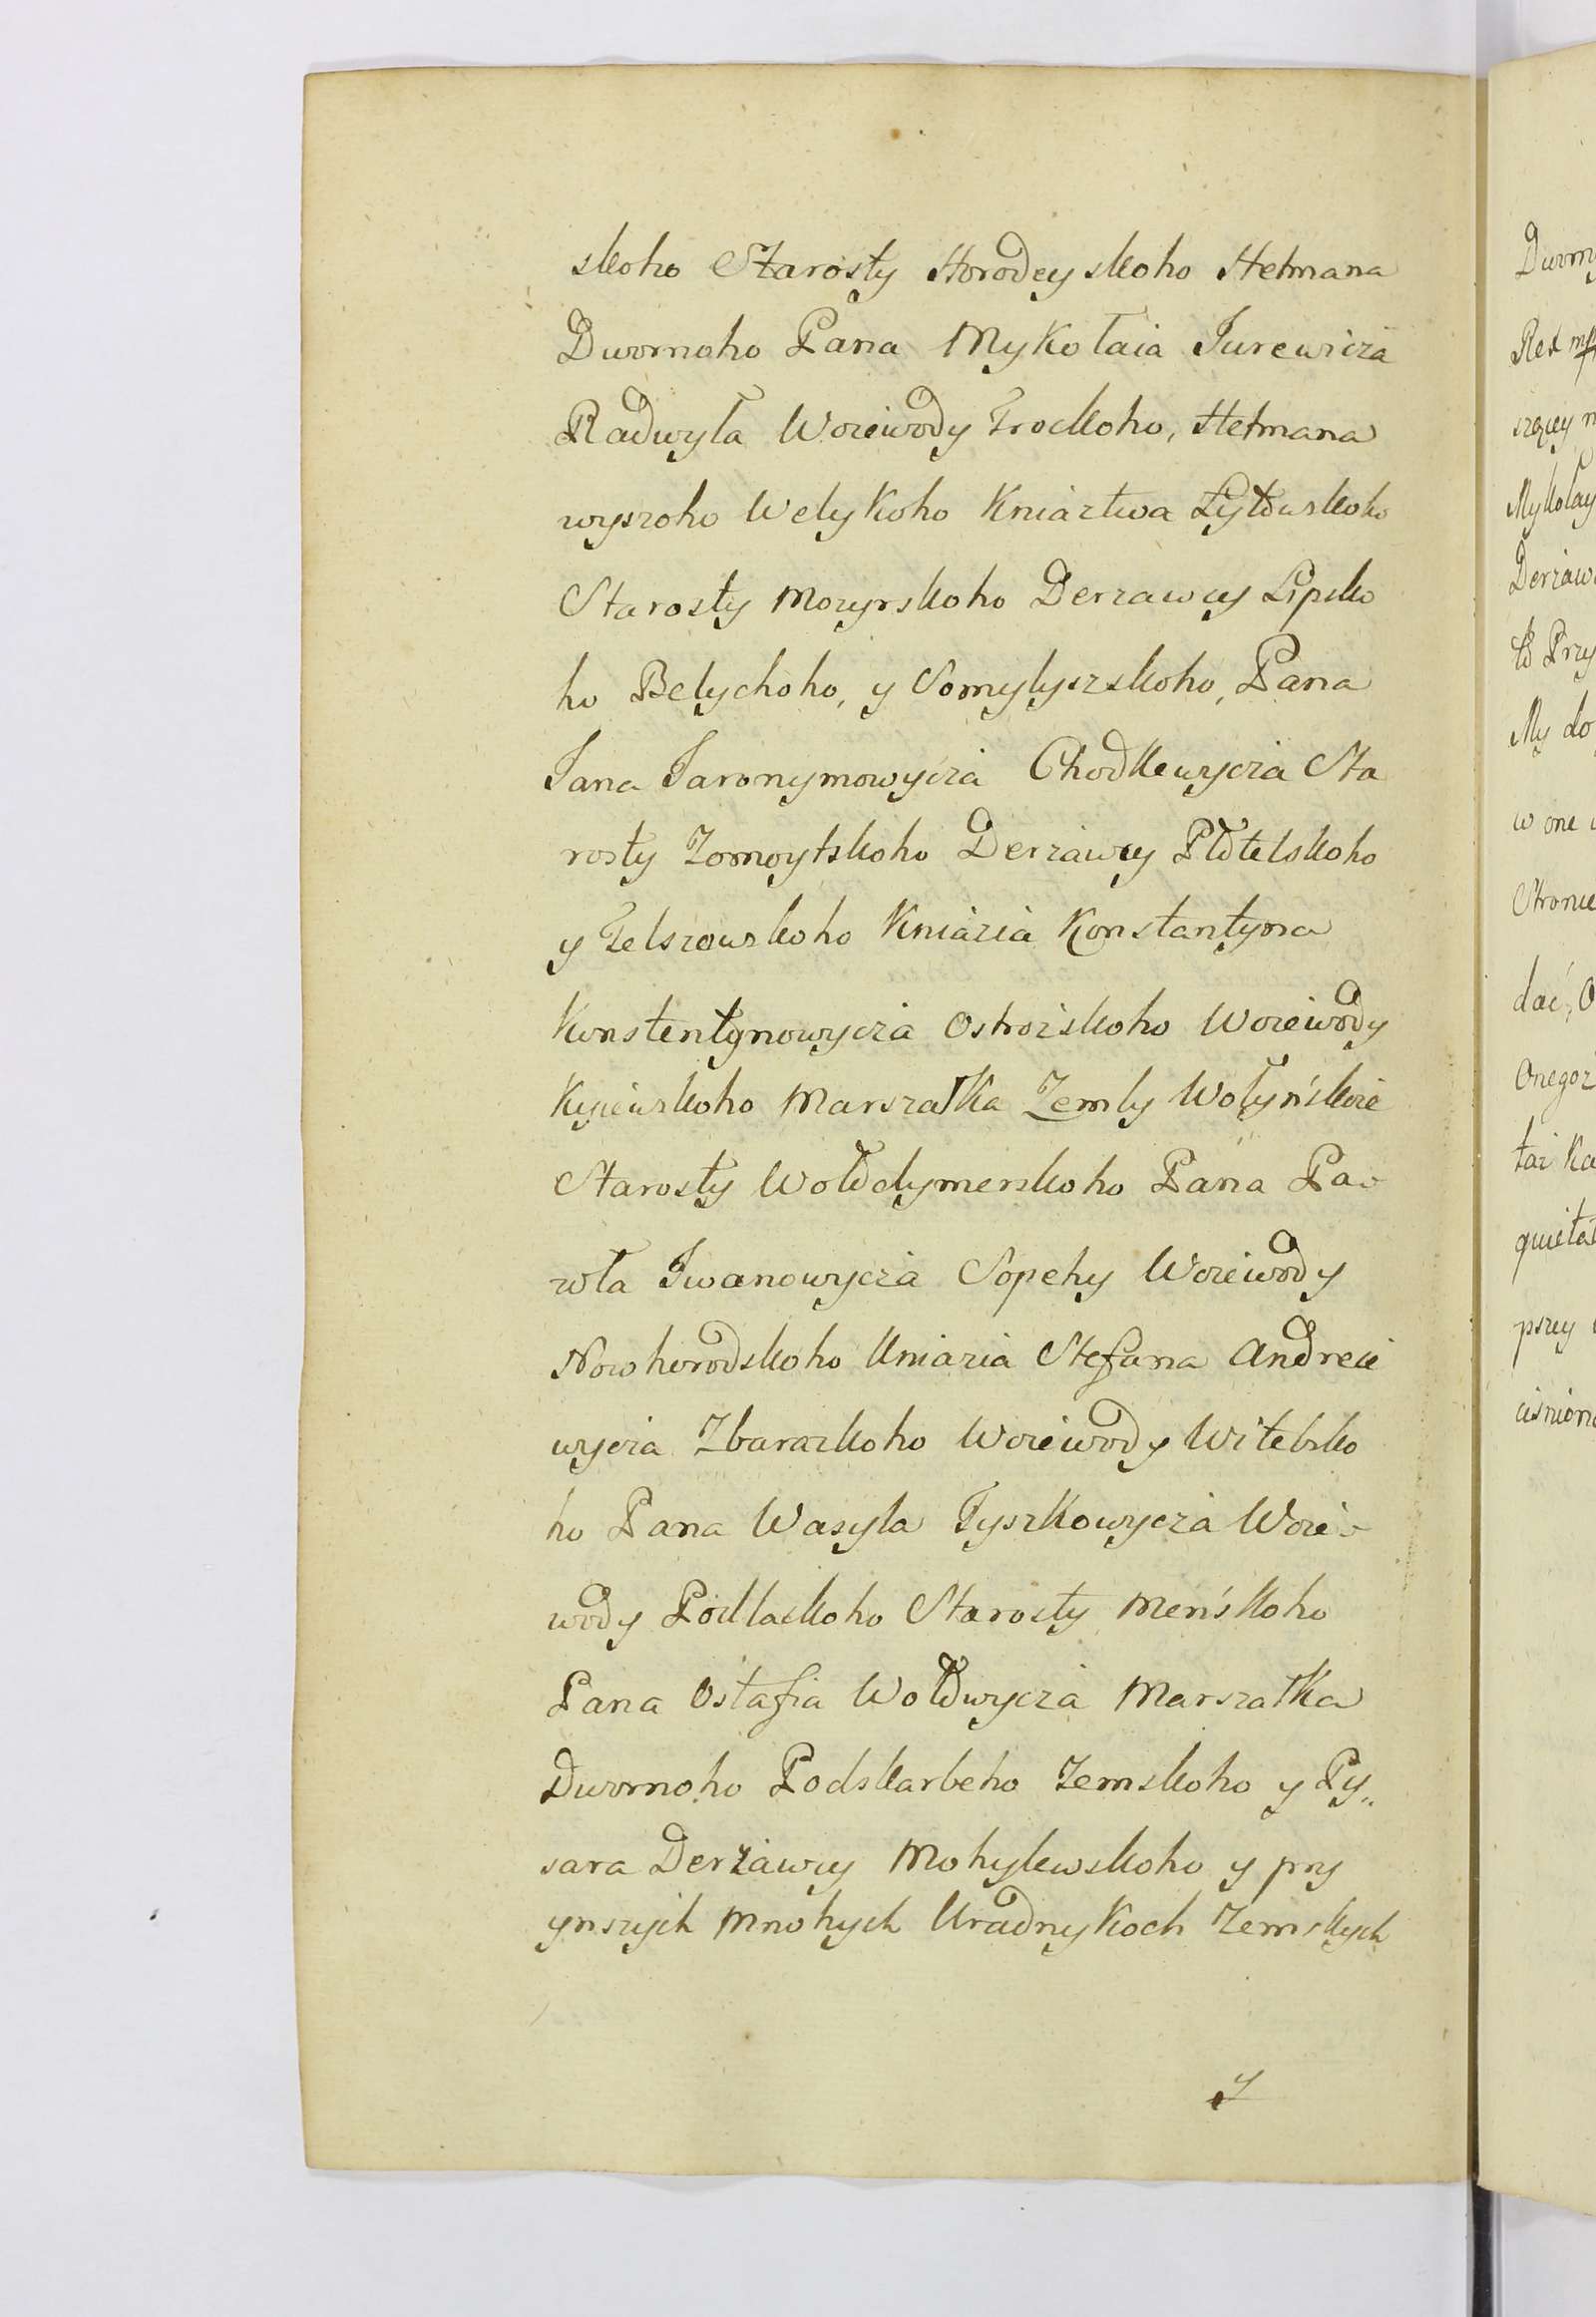 skoho Starosty Horodeyskoho Hetmana
Dwornoho Pana Mykołaia Jurewicza
Radwyła Woiewody Trockoho, Hetmana
wyszoho Welykoho Kniaztwa Łytowskoho
Starosty Mozyrskoho Derzawcy Lipsko
ho Belychoho, y Somylyszskoho, Pana
Jana Jaronymowycza Chodkewycza Sta
rosty Zomoytskoho Derzawcy Płotelskoho
y Telszowskoho Kniazia Konstantyna
Konstentynowycza Ostrozskoho Woiewody
Kyiewskoho Marszałka Zemly Wołyńskoie
Starosty Wołodymerskoho Pana Pa-
wła Iwanowycza Sopehy Woiewody
Nowhorodskoho Kniazia Stefana Andreie
wycza Zbarazkoho Woiewody Witebsko
ho Pana Wasyla Tyszkowycza Woie-
wody Podlaskoho Starosty Meńskoho
Pana Ostafia Wołowycza Marszałka
Dwornoho Podskarbeho Zemskoho y Py„
sara Derżawcy Mohylewskoho y pry
ynszych Mnohych Uradnykoch Zemskych
y
Dworny
szącey
Mykolay
Derzaw
to Przy
My do
w one
Stronie
dać, O
Onegoz
taż Ka
quieta
pszey
ciśnion